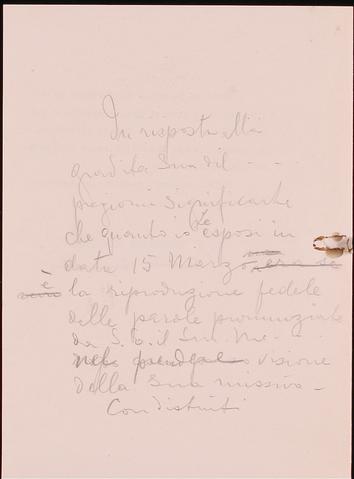 In risposta alla
gradita Sua del - -
pregiomi significarle
che quanto io Le esposi in
data 15 Marzo
è la riproduzione fedele
delle parole pronunziate
da S. E. il
visione
della Sua missiva -
Con distinti